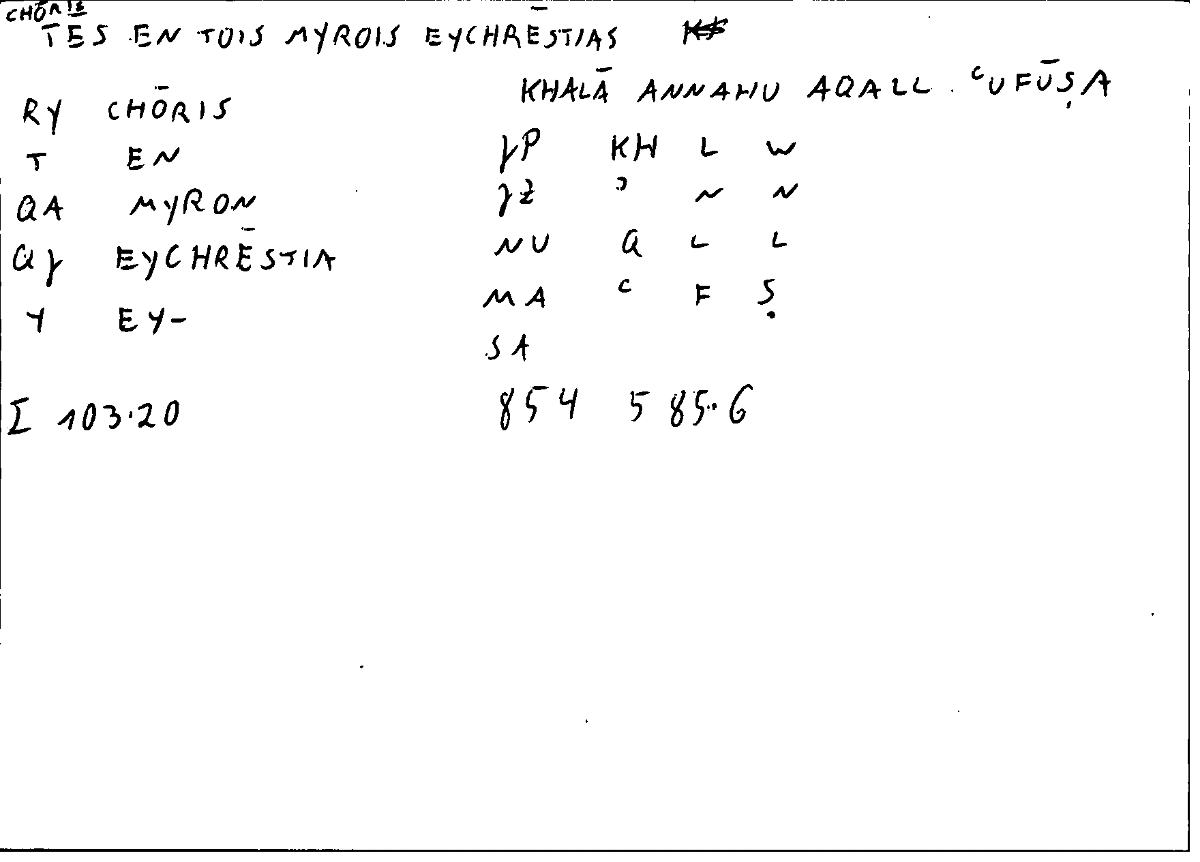 CHŌRIS
TES EN TOIS MYROIS EYCHRĒSTIAS
KHALĀ ANNAHU AQALL ʿUFŪṢA
RY CHŌRIS
T EN
QA MYRON
EYCHRĒSTIA
Y EY-
KH L W
ʾ N N
NU Q L L
MA ʿ F Ṣ
SA
Σ 103.20
854 585.6